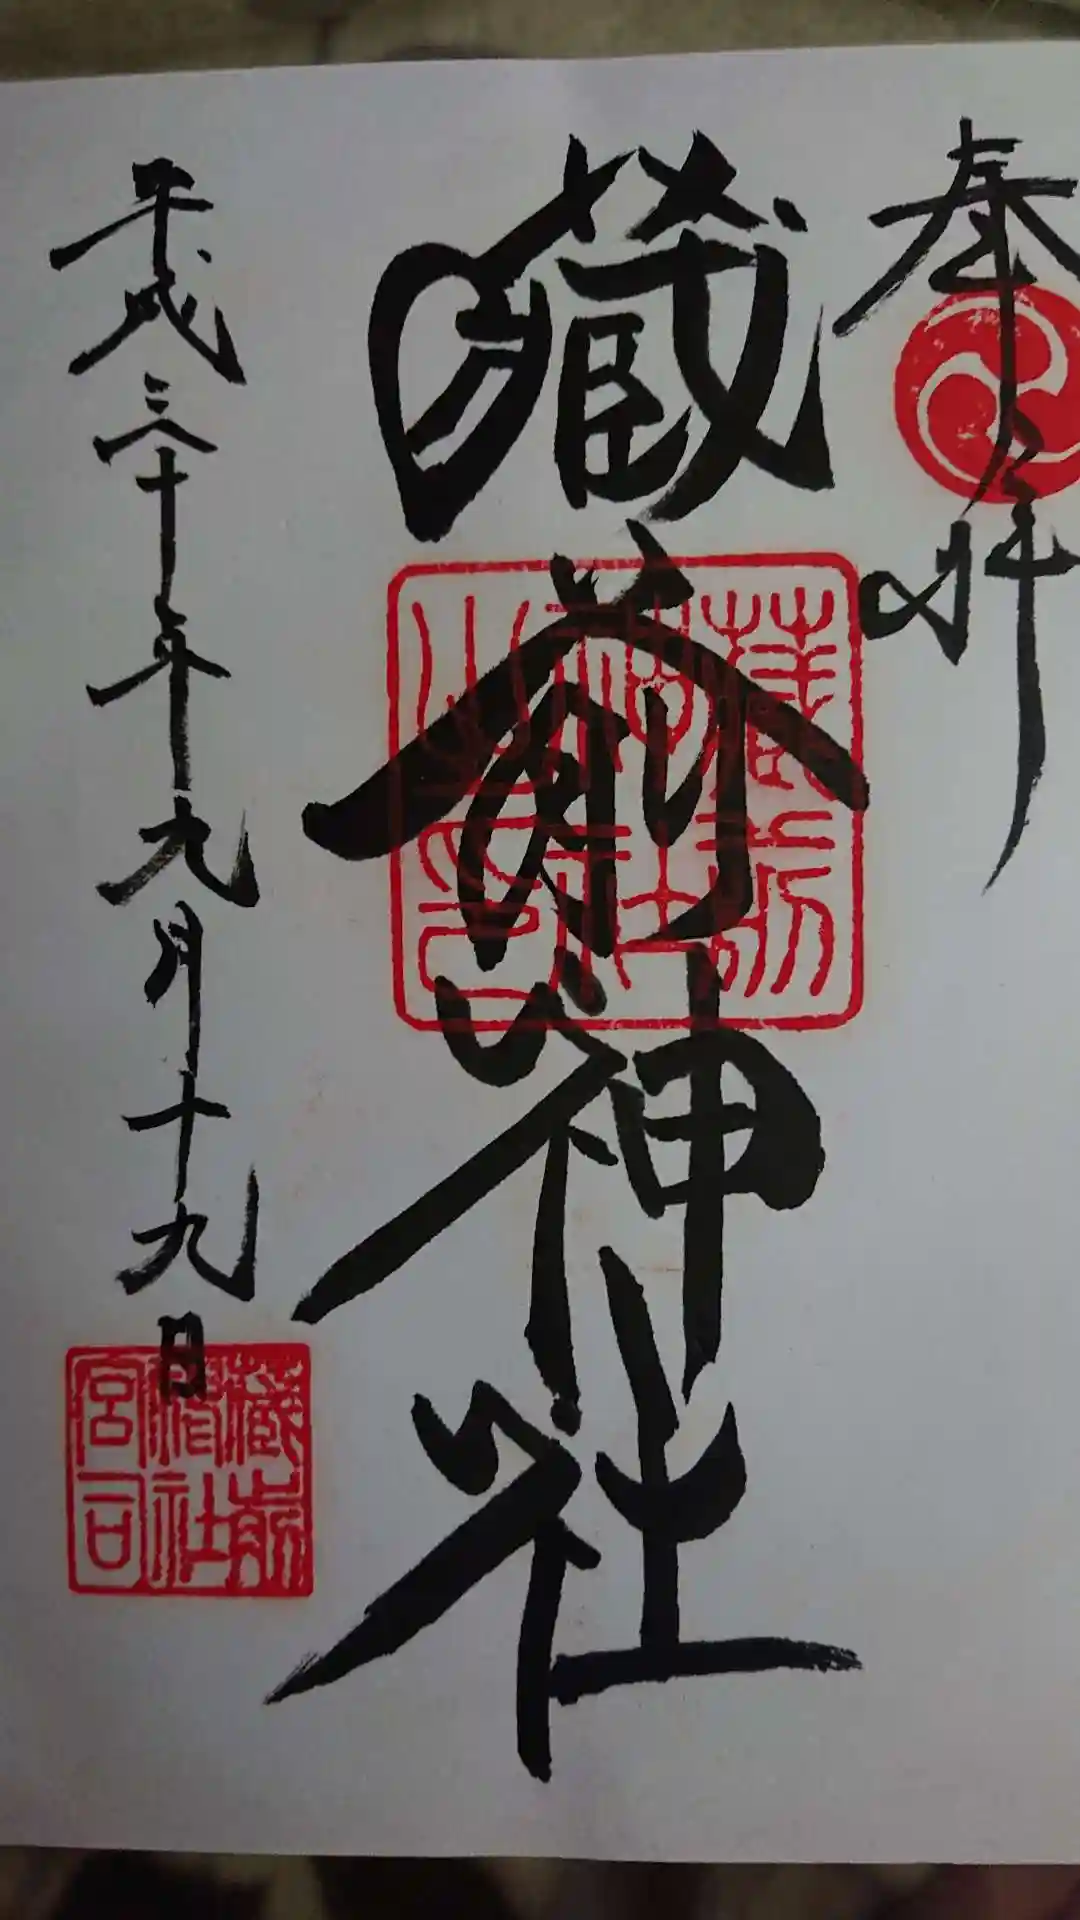 奉拝
蔵前神社
蔵前
神社
之印
平成三十年九月十九日
蔵前
神社
宮司